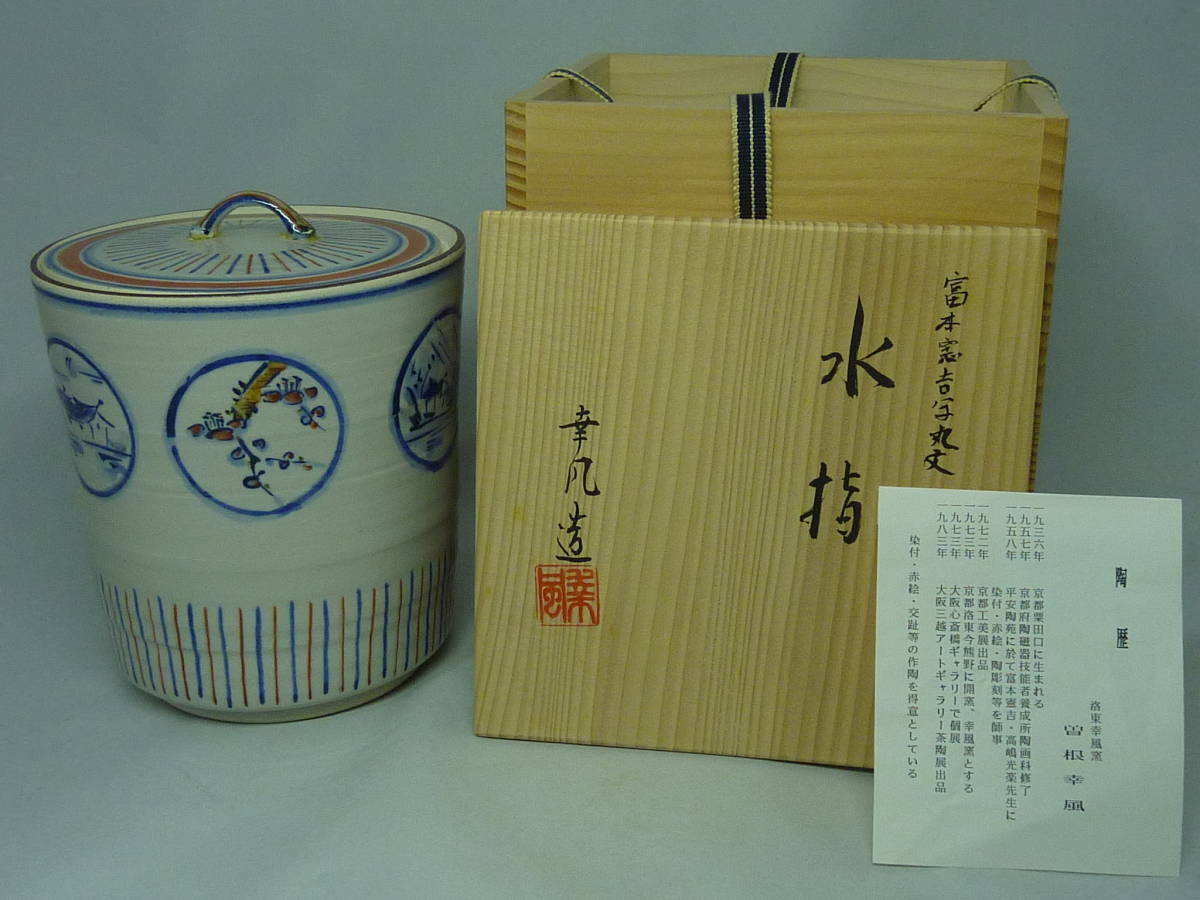 富本憲吉写丸文
水指
幸風造
幸風
陶歴
洛東幸風窯
曽根幸風
一九三六年 京都粟田口に生まれる
一九五七年 京都府陶磁器技能者養成所陶画科修了
一九五八年 平安陶苑に於て富本憲吉・高嶋光楽先生に
染付・赤絵・陶彫刻等を師事
一九七二年 京都工美展出品
一九七三年 京都洛東今熊野に開窯、幸風窯とする
一九七三年 大阪心斎橋ギャラリーで個展
一九八三年 大阪三越アートギャラリー茶陶展出品
染付・赤絵・交趾等の作陶を得意としている